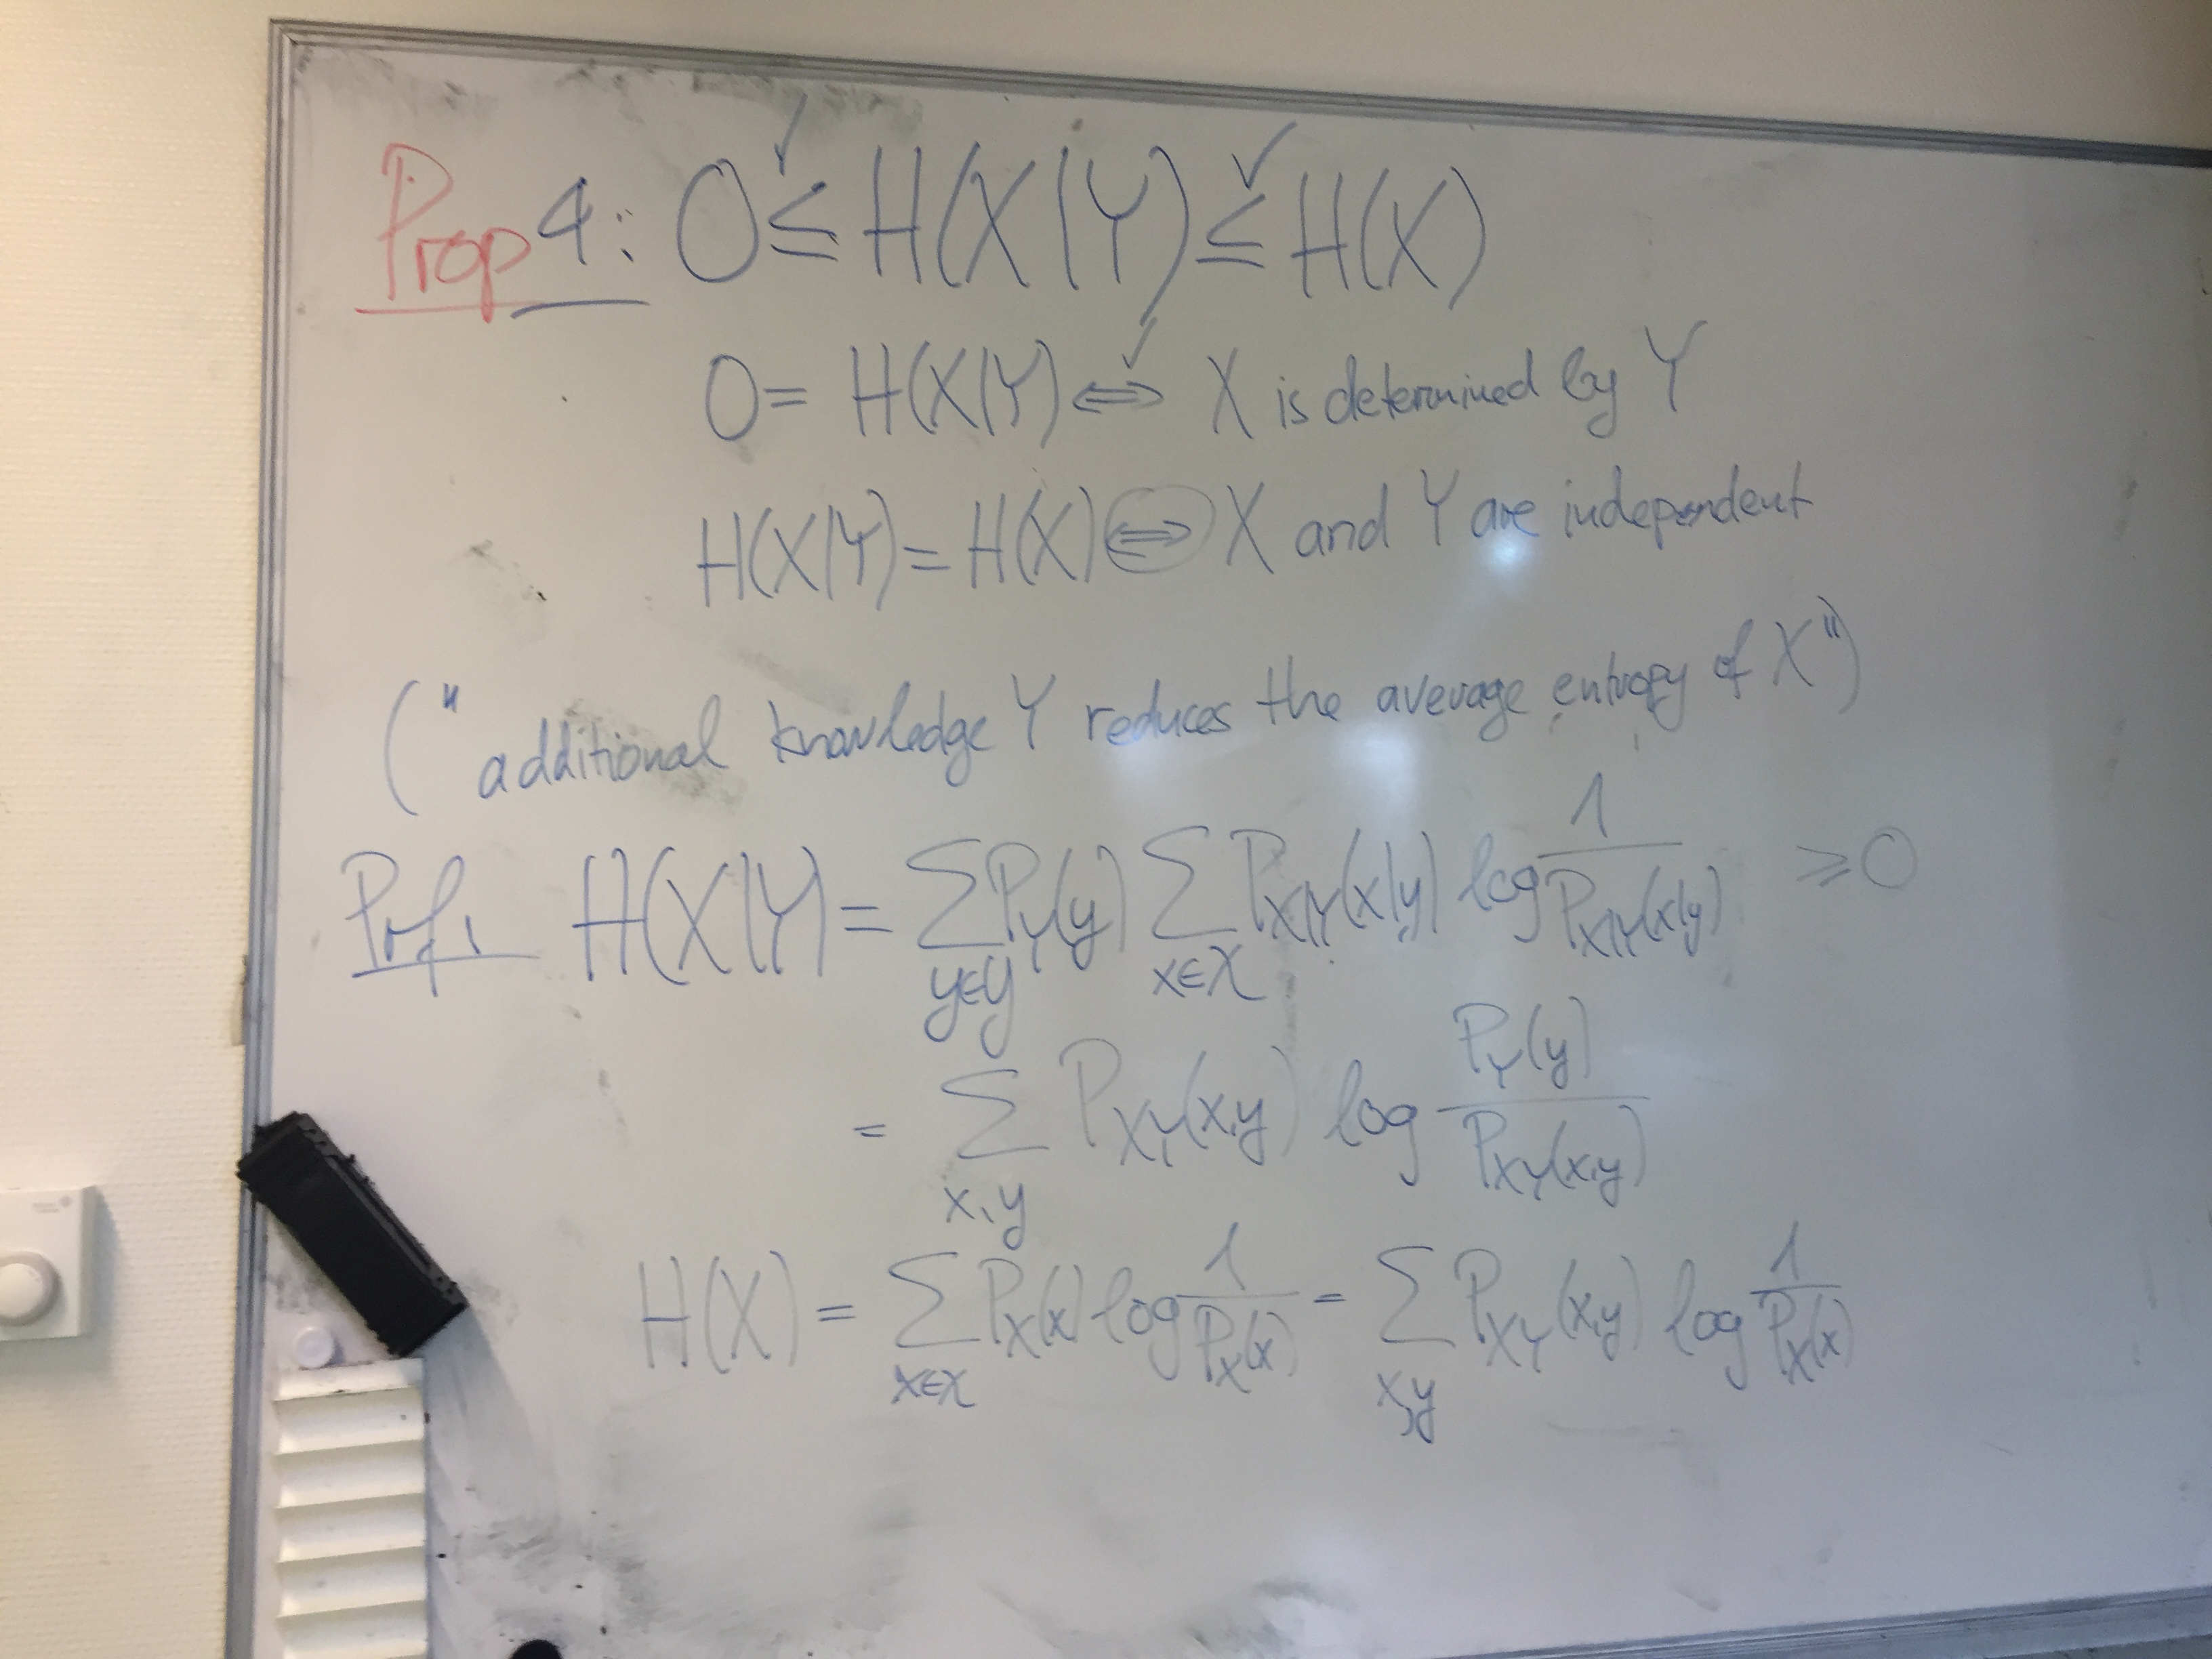 Prop 4: 0 ≤ H(X|Y) ≤ H(X)
0 = H(X|Y) ⇔ X is determined by Y
H(X|Y) = H(X) ⇔ X and Y are independent
("additional knowledge Y reduces the average entropy of X")
Prf: H(X|Y) = ∑_{y∈𝒴} P_Y(y) ∑_{x∈𝒳} P_{X|Y}(x|y) log 1/P_{X|Y}(x|y) ≥ 0
= ∑_{x,y} P_{XY}(x,y) log P_Y(y)/P_{XY}(x,y)
H(X) = ∑_{x∈𝒳} P_X(x) log 1/P_X(x) = ∑_{x,y} P_{XY}(x,y) log 1/P_X(x)